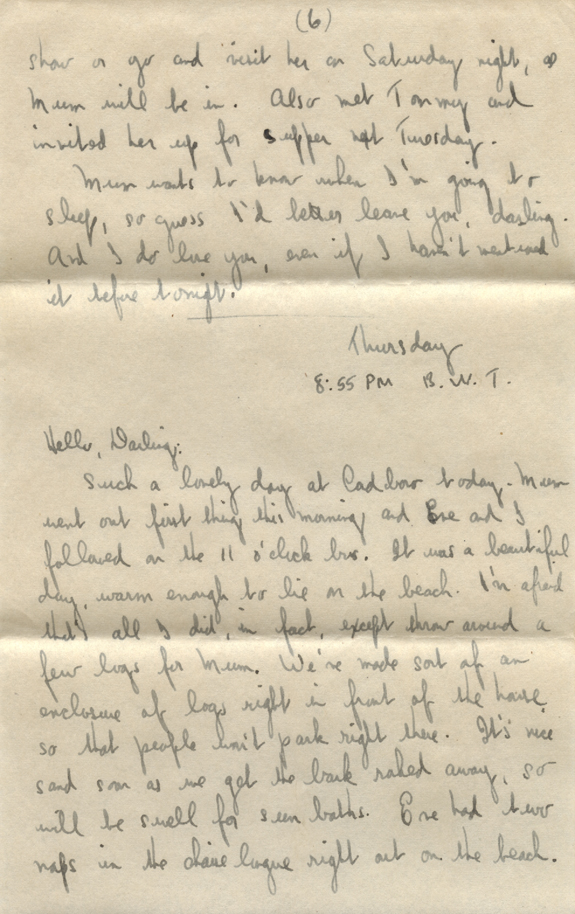 (6)
show or go and visit her on Saturday night, as
Mum will be in. Also met Tommy and
invited her up for supper next Tuesday.
Mum wants to know when I'm going to
sleep, so guess I'd better leave you, darling.
And I do love you, even if I haven't mentioned
it before tonight.
Thursday
8:55 PM B.W.T.
Hello, Darling:
Such a lovely day at Cadboro today. Mum
went out first thing this morning and Eve and I
followed on the 11 o'clock bus. It was a beautiful
day, warm enough to lie on the beach. I'm afraid
that's all I did, in fact, except throw around a
few logs for Mum. We've made sort of an
enclosure of logs right in front of the house
so that people won't park right there. It's nice
sand soon as we get the bark raked away, so
will be swell for sun baths. Eve had two
naps in the chaise longue right out on the beach.